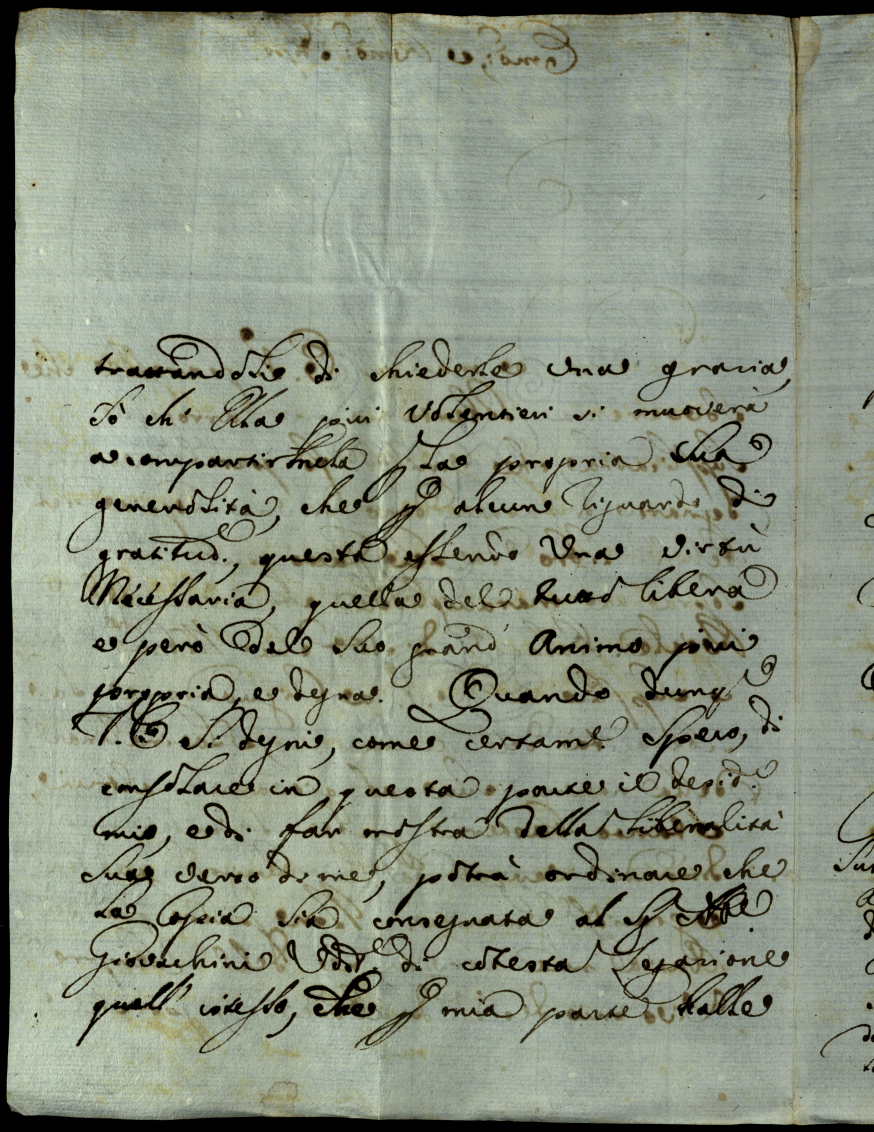 trattandosi di chiederle una grazia,
sò ch' Ella più volentieri si muoverà
a compartirmela p la propria sua
generosità, che p alcun riguardo di
gratitud.e, questa essendo una virtù
Necessaria, quella del tutto libera
e però del suo grand' Animo più
propria, e degna. Quando dunq
V. E. si degni, come certam.e spero, di
consolare in questa parte il desid.o
mio, e di far mostra della liberalità
sua verso di me, potrà ordinare che
la Copia sia consegnata al Sig Abbe
Giovachini Udit.e di cotesta Legazione
quell' istesso, che p mia parte